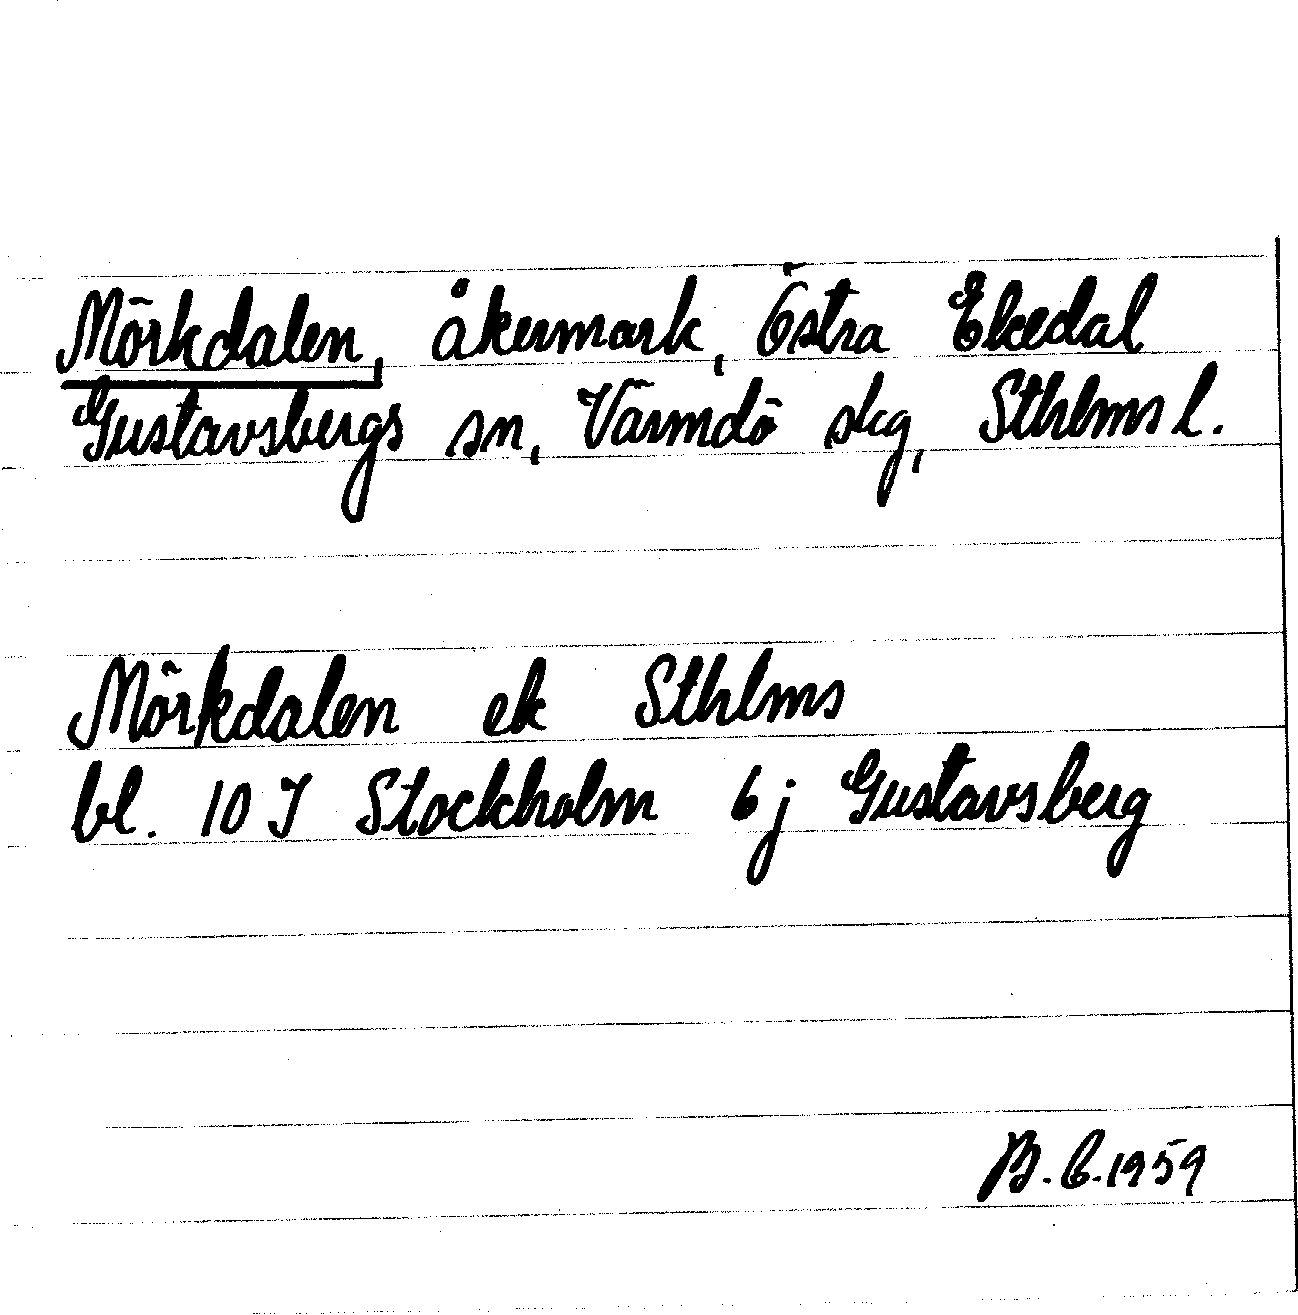 Mörkdalen, åkermark, Östra Ekedal
Gustavsbergs sn, Värmdö skg, Sthlms l.
Mörkdalen ek Sthlms
bl. 10 I Stockholm 6 j Gustavsberg
B. 6. 1959